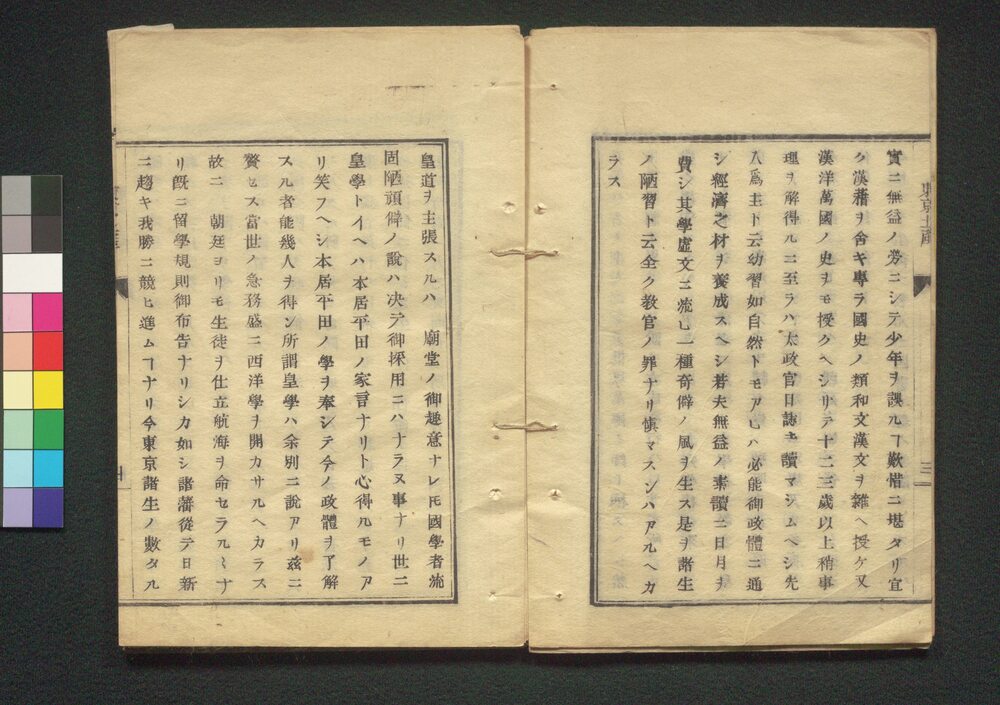 實ニ無益ノ勞ニシテ少年ヲ誤ルヿ歎惜ニ堪タリ宜
ク漢藉ヲ舍キ專ラ國史ノ類和文漢文ヲ雜ヘ授ケ又
漢洋萬國ノ史ヲモ授クヘシリテ十二三歲以上稍事
理ヲ解得ルニ至ラハ太政官日誌ヲ讀マシムヘシ先
入爲主ト云幼習如自然トモアレハ必能御政體ニ通
シ經濟之材ヲ養成スヘシ若夫無益ノ素讀ニ日月ヲ
費シ其學虛文ニ流レ一種奇僻ノ風ヲ生ス是ヲ諸生
ノ陋習ト云全ク敎官ノ罪ナリ愼マスンハアルヘカ
ラス
皇道ヲ主張スルハ 廟堂ノ御趣意ナレ𪜈國學者流
固陋頑僻ノ說ハ决テ御採用ニハナラヌ事ナリ世ニ
皇學トイヘハ本居平田ノ家言ナリト心得ルモノア
リ笑フヘシ本居平田ノ學ヲ奉シテ今ノ政體ヲ了解
スル者能幾人ヲ得ン所謂皇學ハ余別ニ說アリ茲ニ
贅セス當世ノ急務盛ニ西洋學ヲ開カサルヘカラス
故ニ 朝廷ヨリモ生徒ヲ仕立航海ヲ命セラルヽナ
リ旣ニ留學規則御布告ナリシカ如シ諸藩從テ日新
ニ趨キ我勝ニ競ヒ進ムヿナリ今東京諸生ノ數タル
東京土產
三